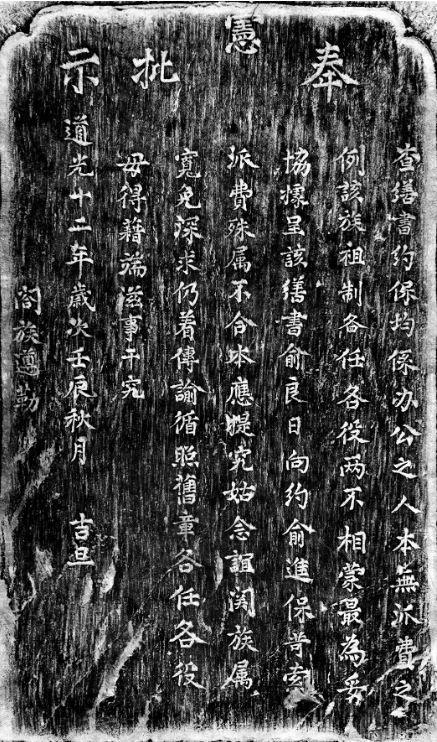 奉憲批示
查繕書約保均係办公之人本無派費之
例該族祖制各任各役两不相蒙最為妥
協據呈該繕書俞良日向約俞進保苛索
派費殊属不合本應提究姑念誼関族属
寬免深求仍着傳諭循照舊章各任各役
毋得藉端滋事干究
道光十二年歲次壬辰秋月 吉旦
閤族遵勒